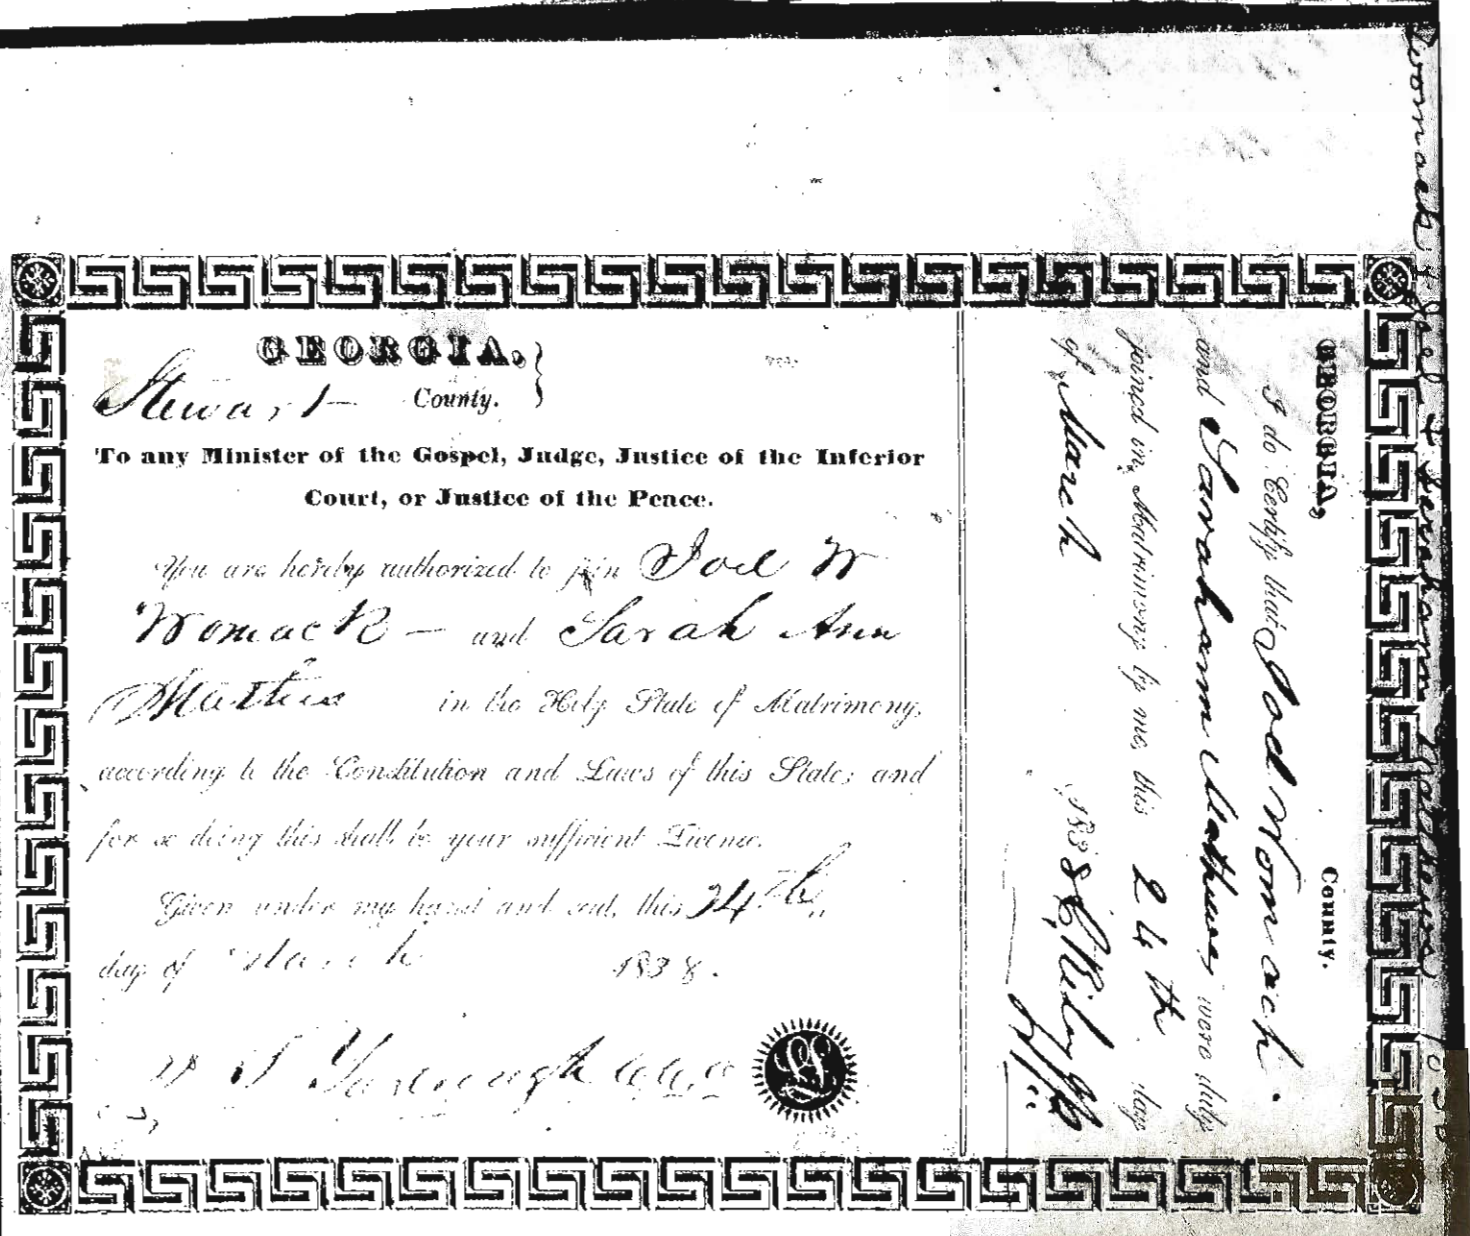 GEORGIA,
Stewart County.
To any Minister of the Gospel, Judge, Justice of the Inferior
Court, or Justice of the Peace.
You are hereby authorized to join Joel W
Womack and Sarah Ann
Mathis in the Holy State of Matrimony,
according to the Constitution and Laws of this State; and
for so doing this shall be your sufficient License.
Given under my hand and seal, this 24th
day of March 1838.
Yarbrough c.c.o
L S
GEORGIA, County.
I do Certify that Joel Womack.
and Sarahann Mathews were duly
joined in Matrimony by me, this 24th day
of March 1838
Womack Joel & Sarahann